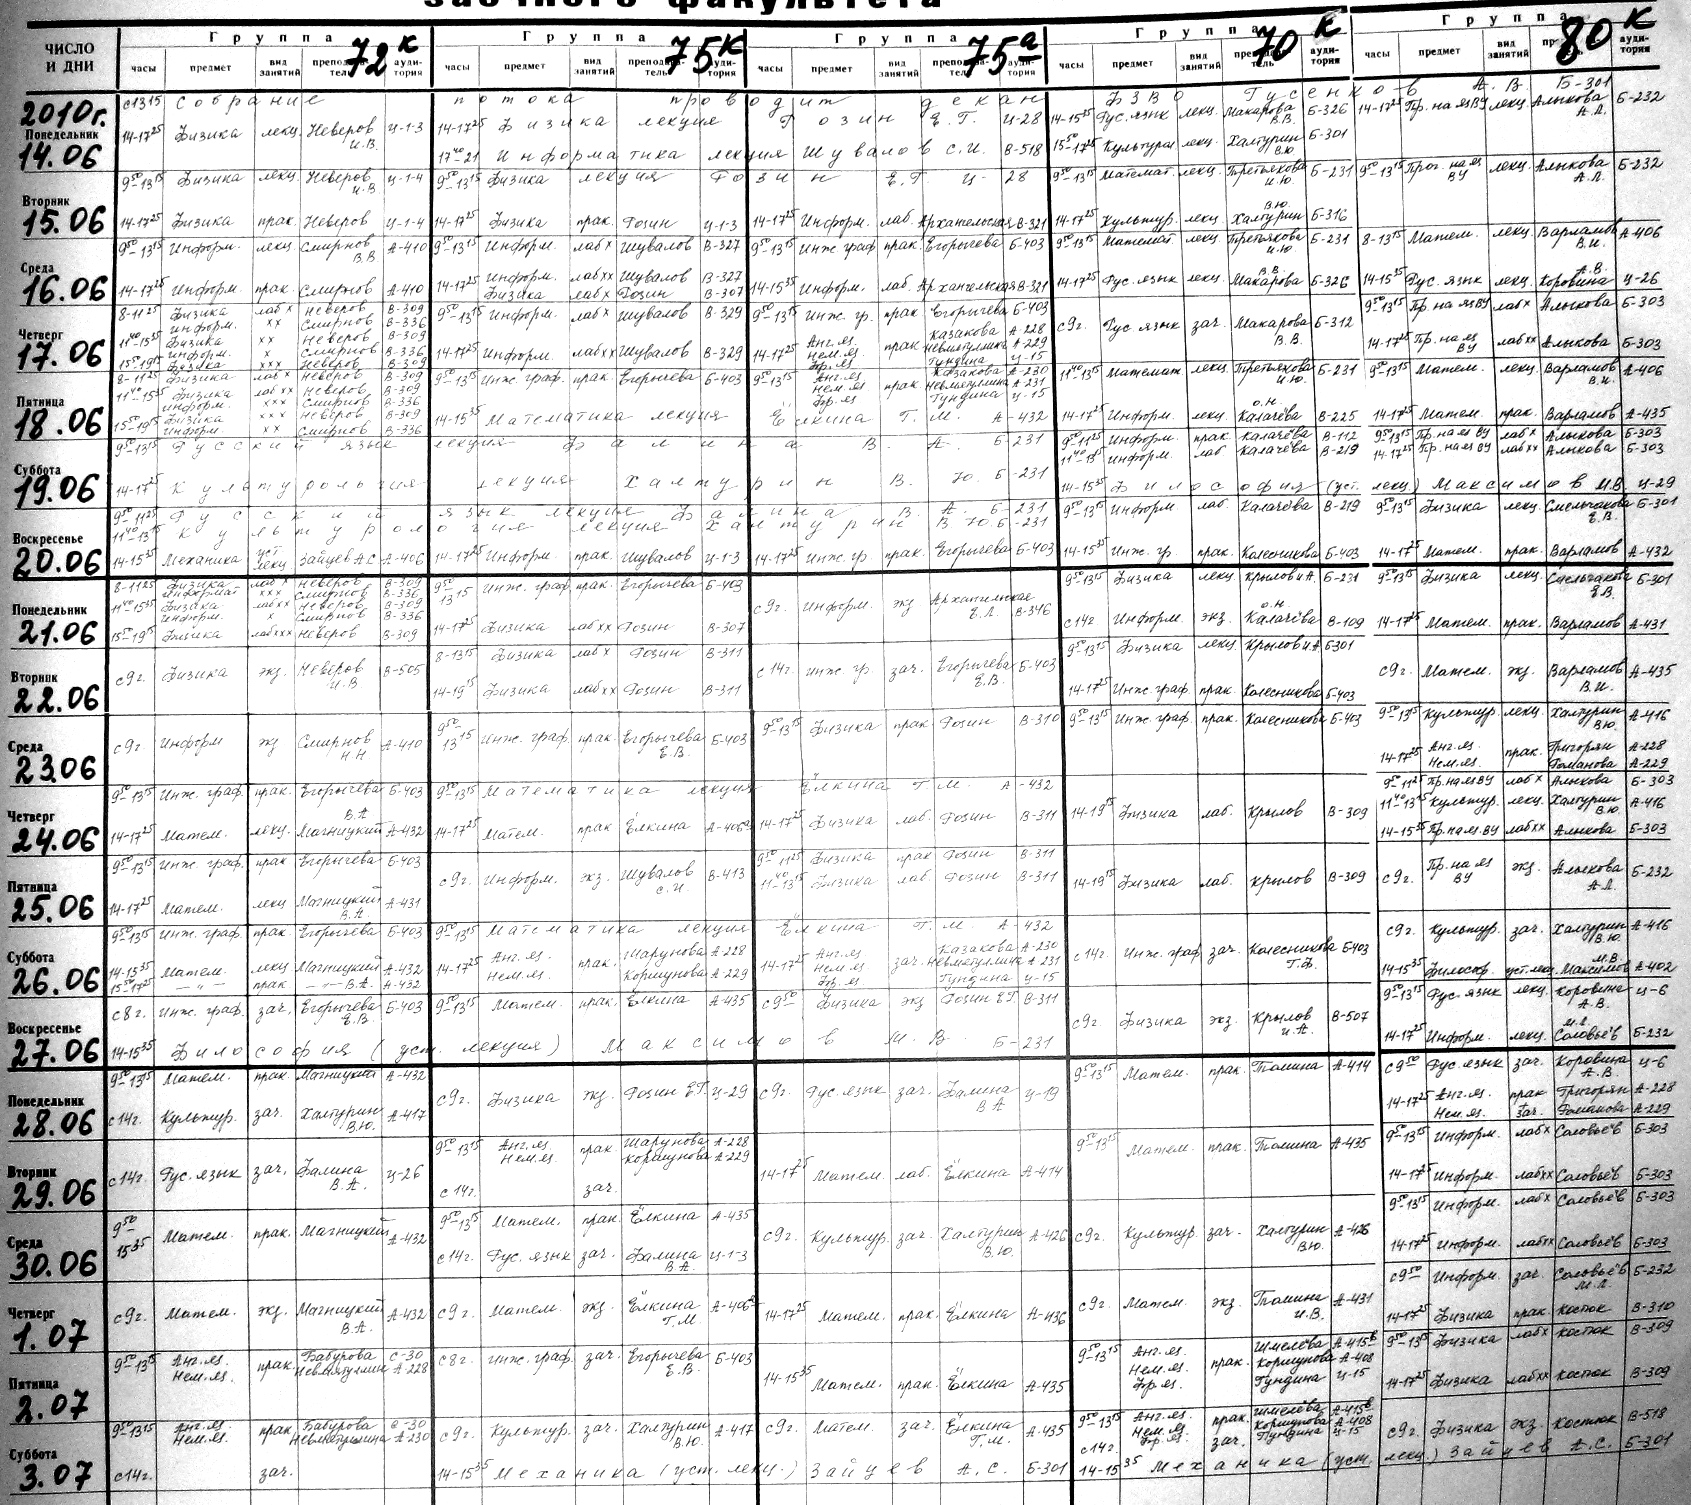 заочного факультета
ЧИСЛО И ДНИ
Группа 72к Группа 75к Группа 75а Группа 70к Группа 80к
часы предмет вид занятий преподаватель аудитория часы предмет вид занятий преподаватель аудитория часы предмет вид занятий преподаватель аудитория часы предмет вид занятий преподаватель аудитория часы предмет вид занятий преподаватель аудитория
2010г.
с 13 15 Собрание потока проводит декан ФЗВО Гусенков А.В. Б-301
Понедельник 14.06
14-17 25 Физика лекц. Неверов И.В. Ц-1-3 14-17 25 Физика лекция Фозин Е.Г. Ц-28 14-15 35 Рус.язык лекц. Макарова В.В. Б-326 14-17 25 Пр. на яз ВУ лекц. Алыкова А.Л. Б-232
17 40-21 Информатика лекция Шувалов С.И. В-518 15 50-17 25 Культурол лекц. Халтурин В.Ю Б-301
Вторник 15.06
9 50-13 15 Физика лекц. Неверов И.В Ц-1-4 9 50-13 15 Физика лекция Фозин Е.Г. Ц-28 9 50-13 15 Математ. лекц. Третьякова И.Ю. Б-231 9 50-13 15 Прог. на яз ВУ лекц. Алыкова А.Л. Б-232
14-17 25 Физика прак. Неверов Ц-1-4 14-17 25 Физика прак. Фозин Ц-1-3 14-17 25 Информ. лаб. Архангельская В-321 14-17 25 Культур. лекц. Халтурин В.Ю. Б-316
Среда 16.06
9 50-13 15 Информ. лекц Смирнов В.В А-410 9 50-13 15 Информ. лаб х Шувалов В-327 9 50-13 15 Инж граф прак. Егорычева Б-403 9 50-13 15 Математ. лекц. Третьякова И.Ю. Б-231 8-13 15 Матем. лекц. Варламов В.И. А-406
14-17 25 Информ. прак Смирнов А-410 14-17 25 Информ. лаб хх Шувалов В-327 14-15 35 Информ. лаб. Архангельская В-321 14-17 25 Рус. язык лекц. Макарова В.В. Б-326 14-15 35 Рус. язк лекц. Коровина А.В. Ц-26
Физика лаб х Фозин В-307
Четверг 17.06
8-11 25 Физика лаб х Неверов В-309 9 50-13 15 Информ. лаб х Шувалов В-329 9 50-13 15 Инж. гр. прак Егорычева Б-403 с 9г. Рус язык зач. Макарова В.В. Б-312 9 50-13 15 Пр. на яз ВУ лаб х Алыкова Б-303
информ. хх Смирнов В-336
11 40-15 25 Физика хх Неверов В-309 14-17 25 Информ. лаб хх Шувалов В-329 14-17 25 Англ.яз. Нем.яз. Фр.яз прак Казакова А-228 Невмятуллина А-229 Гундина Ц-15 14-17 25 Пр. на яз ВУ лаб хх Алыкова Б-303
информ. х Смирнов В-336
15 50-19 15 Физика хх Неверов В-309
Пятница 18.06
8-11 25 Физика лаб х Неверов В-309 9 50-13 15 Инж. граф. прак. Егорычева Б-403 9 50-13 15 Анг.яз Нем.яз Фр.яз прак Казакова А-230 Невмятуллина А-231 Гундина Ц-15 11 40-13 15 Математ лекц. Третьякова И.Ю. Б-231 9 50-13 15 Матем. лекц. Варламов В.И. А-406
11 40-15 35 Физика лаб хх Неверов В-309
информ. ххх Смирнов В-336 14-15 35 Математика лекция Ёлкина Т.М. А-432 14-17 25 Информ. лекц. Калачёва О.Н. В-225 14-17 25 Матем. прак. Варламов А-435
15 50-19 15 Физика ххх Неверов В-309
информ. хх Смирнов В-336
Суббота 19.06
9 50-13 15 Русский язык лекция Фалина В.А. Б-231 9 50-11 25 Информ. прак Калачёва В-112 9 50-13 15 Пр. на яз ВУ лаб х Алыкова Б-303
11 40-13 15 Информ. лаб Калачёва В-219 14-17 25 Пр. на яз. ВУ лаб хх Алыкова Б-303
14-17 25 Культурология лекция Халтурин В.Ю. Б-231 14-15 35 Философия (уст. лекц) Максимов М.В. Ц-29
Воскресенье 20.06
9 50-11 25 Русский язык лекция Фалина В.А. Б-231 9 50-13 15 Информ. лаб. Калачёва В-219 9 50-13 15 Физика лекц. Смельчакова Е.В. Б-301
11 40-13 15 Культурология лекция Халтурин В.Ю. Б-231
14-15 35 Механика уст. лекц Зайцев А С А-406 14-17 25 Информ. прак. Шувалов Ц-1-3 14-17 25 инж. гр. прак Егорычева Б-403 14-15 35 Инж. гр. прак. Колесникова Б-403 14-17 25 Матем. прак. Варламов А-432
Понедельник 21.06
8-11 25 Физика лаб х Неверов В-309 9 50-13 15 Инж. граф прак. Егорычева Б-403 с 9г. Информ. экз Архангельская Е.Л. В-346 9 50-13 15 Физика лекц Крылов И А. Б-231 9 50-13 15 Физика лекц. Смельчакова Е.В. Б-301
информат ххх Смирнов В-336
11 40-15 35 Физика лаб хх Неверов В-309
информ. х Смирнов В-336
15 50-19 15 Физика лаб ххх Неверов В-309 14-17 25 Физика лаб хх Фозин В-307 с 14г Информ. экз. Калачёва О.Н В-109 14-17 25 Матем. прак. Варламов А-431
Вторник 22.06
с 9г. Физика экз. Неверов И.В В-505 8-13 15 Физика лаб х Фозин В-311 с 14г. инж. гр. зач. Егорычева Е.В. Б-403 9 50-13 15 Физика лекц Крылов И.А Б301 с 9г. Матем. экз. Варламов В.И. А-435
14-19 15 Физика лаб хх Фозин В-311 14-17 25 Инж граф. прак. Колесникова Б-403
Среда 23.06
с 9г. Информ экз Смирнов Н.Н. А-410 9 50-13 15 Инж. граф. прак. Егорычева Е.В. Б-403 9 50-13 15 Физика прак Фозин В-310 9 50-13 15 Инж. граф. прак. Колесникова Б-403 9 50-13 15 Культур. лекц. Халтурин В.Ю. А-416
14-17 25 Анг.яз. Нем.яз. прак. Григорян А-228 Романова А-229
Четверг 24.06
9 50-13 15 Инж. граф. прак. Егорычева Б-403 9 50-13 15 Математика лекция Ёлкина Т.М. А-432 9 50-11 25 Пр. на яз ВУ лаб х Алыкова Б-303
11 40-13 15 Культур. лекц. Халтурин В.Ю. А-416
14-17 25 Матем. лекц. Магницкий В.А А-432 14-17 25 Матем. прак Ёлкина А-406а 14-17 25 Физика лаб. Фозин В-311 14-19 15 Физика лаб. Крылов В-309 14-15 35 Пр. на яз. ВУ лаб хх Алыкова Б-303
Пятница 25.06
9 50-13 15 Инж. граф. прак Егорычева Б-403 с 9г. Информ. экз. Шувалов С.И. В-413 9 50-11 25 Физика прак Фозин В-311
11 40-13 15 Физика лаб. Фозин В-311 14-19 15 Физика лаб. Крылов В-309 с 9г. Пр. на яз ВУ экз. Алыкова А.Л. Б-232
14-17 25 Матем. лекц Магницкий В.А. А-431
Суббота 26.06
9 50-13 15 Инж. граф. прак Егорычева Б-403 9 50-13 15 Математика лекция Ёлкина Т.М. А-432 с 14г. Инж. граф зач. Колесникова Т.Ф. Б403 с 9г. Культур. зач. Халтурин В.Ю. А-416
14-15 35 Матем. лекц Магницкий А-432 14-17 25 Анг.яз. Нем.яз. прак. Шарунова А-228 Коршунова А-229 14-17 25 Анг.яз Нем.яз Фр.яз. зач. Казакова А-230 Невмятуллина А 231 Гундина Ц-15 14-15 35 Философ. уст. лекц. Максимов М.В. А-402
15 50-17 25 —"— прак —"— В.А. А-432
Воскресенье 27.06
с 8г. Инж. граф. зач. Егорычева Е.В. Б-403 9 50-13 15 Матем. прак. Ёлкина А-435 с 9 50 Физика экз Фозин Е.Г. В-311 с 9г. Физика экз. Крылов И.А. В-507 9 50-13 15 Рус. язык лекц. Коровина А.В. Ц-6
14-15 35 Философия (уст. лекция) Максимов М.В. Б-231 14-17 25 Информ. лекц. Соловьёв Б-232
Понедельник 28.06
9 50-13 15 Матем. прак. Магницкий А-432 с 9г. Физика экз. Фозин Е.Г. Ц-29 с 9г. Рус. язык зач. Фалина В А Ц-19 9 50-13 15 Матем. прак. Томина А-414 с 9 50 Рус. язык зач. Коровина А.В. Ц-6
с 14г. Культур. зач. Халтурин В.Ю. А-417 14-17 25 Анг.яз. Нем.яз. прак зач. Григорян А-228 Романова А-229
Вторник 29.06
с 14г. Рус. язык зач. Фалина В.А. Ц-26 9 50-13 15 Анг.яз. Нем.яз. прак Шарунова А-228 Коршунова А-229 14-17 25 Матем лаб. Ёлкина А-414 9 50-13 15 Матем. прак. Томина А-435 9 50-13 15 Информ. лаб х Соловьёв Б-303
с 14г. зач. 14-17 25 Информ. лаб хх Соловьёв Б-303
Среда 30.06
9 50-15 35 Матем. прак. Магницкий А-432 9 50-13 15 Матем. прак. Ёлкина А-435 с 9г. Культур. зач. Халтурин В.Ю. А-426 с 9г. Культур зач. Халтурин В.Ю. А-426 9 50-13 15 Информ. лаб х Соловьёв Б-303
с 14г. Рус. язык зач. Фалина В.А. Ц-1-3 14-17 25 Информ. лаб хх Соловьёв Б-303
Четверг 1.07
с 9г. Матем. экз. Магницкий В.А. А-432 с 9г. Матем. экз. Ёлкина Т.М. А-406а 14-17 25 Матем прак. Ёлкина А-436 с 9г. Матем. экз. Томина И.В. А-431 с 9 50 Информ. зач. Соловьёв Б-232
14-17 25 Физика прак. Костюк В-310
Пятница 2.07
9 50-13 15 Анг.яз. Нем.яз. прак. Бабурова С-30 Невмятуллина А-228 с 8г. инж. граф. зач. Егорычева Е.В. Б-403 14-15 35 Матем. прак. Ёлкина А-435 9 50-13 15 Анг.яз. Нем.яз. Фр.яз. прак. Шмелёва А-415б Коршунова А-408 Гундина Ц-15 9 50-13 15 Физика лаб х Костюк В-309
14-17 25 Физика лаб хх Костюк В-309
Суббота 3.07
9 50-13 15 Анг.яз. Нем.яз. прак Бабурова С-30 Невмятуллина А-230 с 9г. Культур. зач. Халтурин В.Ю. А-417 с 9г. Матем. зач. Ёлкина Т.М. А-435 9 50-13 15 Анг.яз. Нем.яз. Фр.яз. прак. Шмелёва А-415б Коршунова А-408 Гундина Ц-15 с 9г. Физика экз. Костюк В-518
с 14г. зач. 14-15 35 Механика (уст. лекц.) Зайцев А.С. Б-301 с 14г. зач. 14-15 35 Механика (уст. лекц.) Зайцев А.С. Б-301